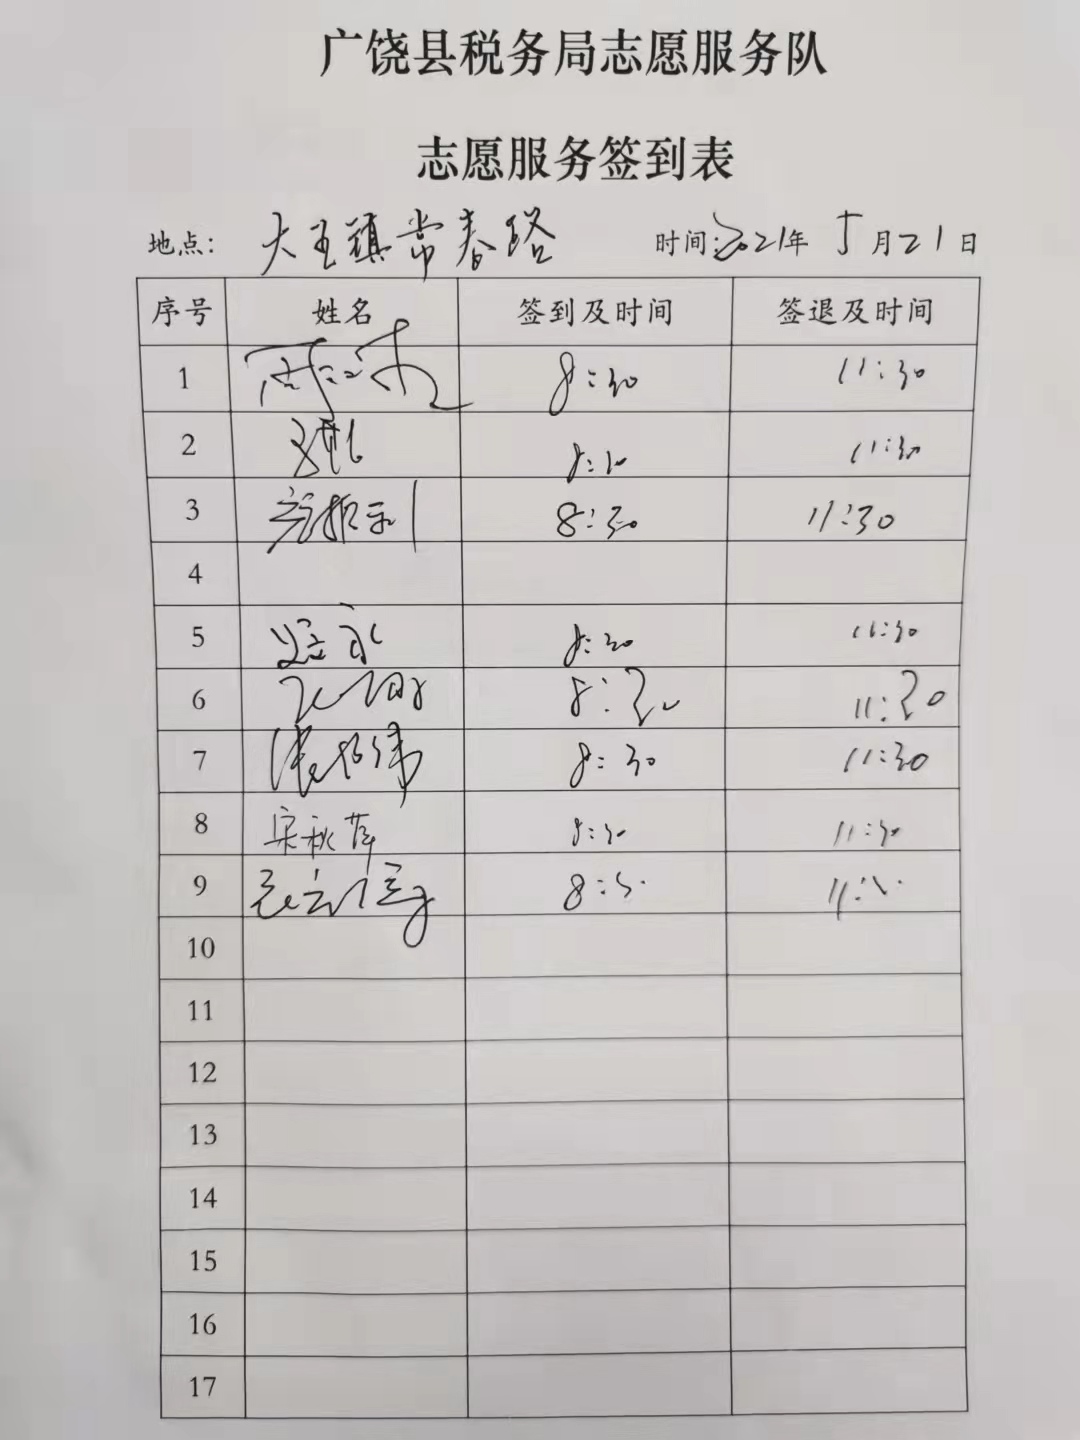 广饶县税务局志愿服务队
志愿服务签到表
地点: 大王镇常春路 时间:2021年 5月21日
序号 姓名 签到及时间 签退及时间
1 8:30 11:30
2 8:30 11:30
3 8:30 11:30
4
5 8:30 11:30
6 8:30 11:30
7 8:30 11:30
8 宋秋萍 8:30 11:30
9
10
11
12
13
14
15
16
17